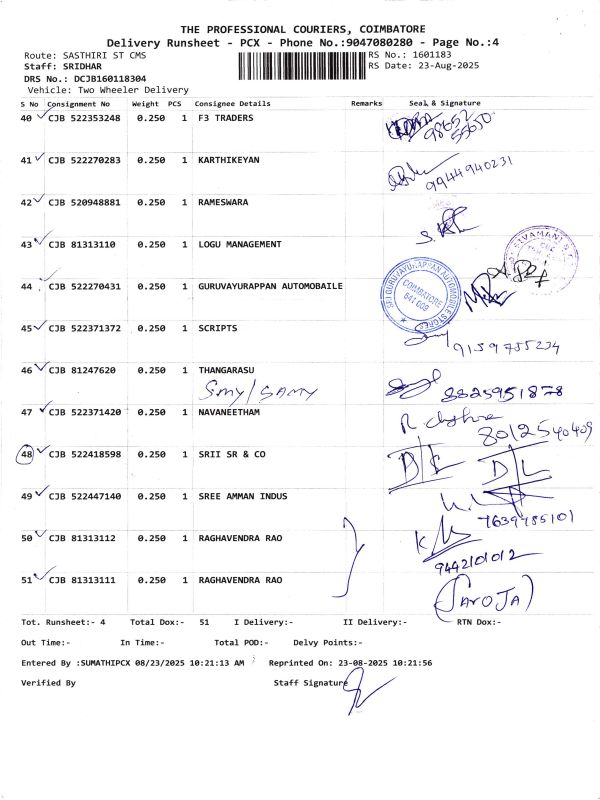 THE PROFESSIONAL COURIERS, COIMBATORE
Delivery Runsheet - PCX - Phone No.:9047080280 - Page No.:4
Route: SASTHIRI ST CMS RS No.: 1601183
Staff: SRIDHAR RS Date: 23-Aug-2025
DRS No.: DCJB160118304
Vehicle: Two Wheeler Delivery
S No Consignment No Weight PCS Consignee Details Remarks Seal & Signature
40 CJB 522353248 0.250 1 F3 TRADERS 98652 55650
41 CJB 522270283 0.250 1 KARTHIKEYAN 9944940231
42 CJB 520948881 0.250 1 RAMESWARA
43 CJB 81313110 0.250 1 LOGU MANAGEMENT
SIVAMANI
44 CJB 522270431 0.250 1 GURUVAYURAPPAN AUTOMOBAILE
SRI GURUVAYURAPPAN AUTOMOBILE STORES
COIMBATORE
641 008
45 CJB 522371372 0.250 1 SCRIPTS
9159755234
46 CJB 81247620 0.250 1 THANGARASU
SMY/SAMY 8825951878
47 CJB 522371420 0.250 1 NAVANEETHAM
8012540409
48 CJB 522418598 0.250 1 SRII SR & CO
D/L D/L
49 CJB 522447140 0.250 1 SREE AMMAN INDUS
7639785101
50 CJB 81313112 0.250 1 RAGHAVENDRA RAO
9442101012
51 CJB 81313111 0.250 1 RAGHAVENDRA RAO
(SAROJA)
Tot. Runsheet:- 4 Total Dox:- 51 I Delivery:- II Delivery:- RTN Dox:-
Out Time:- In Time:- Total POD:- Delvy Points:-
Entered By :SUMATHIPCX 08/23/2025 10:21:13 AM Reprinted On: 23-08-2025 10:21:56
Verified By Staff Signature